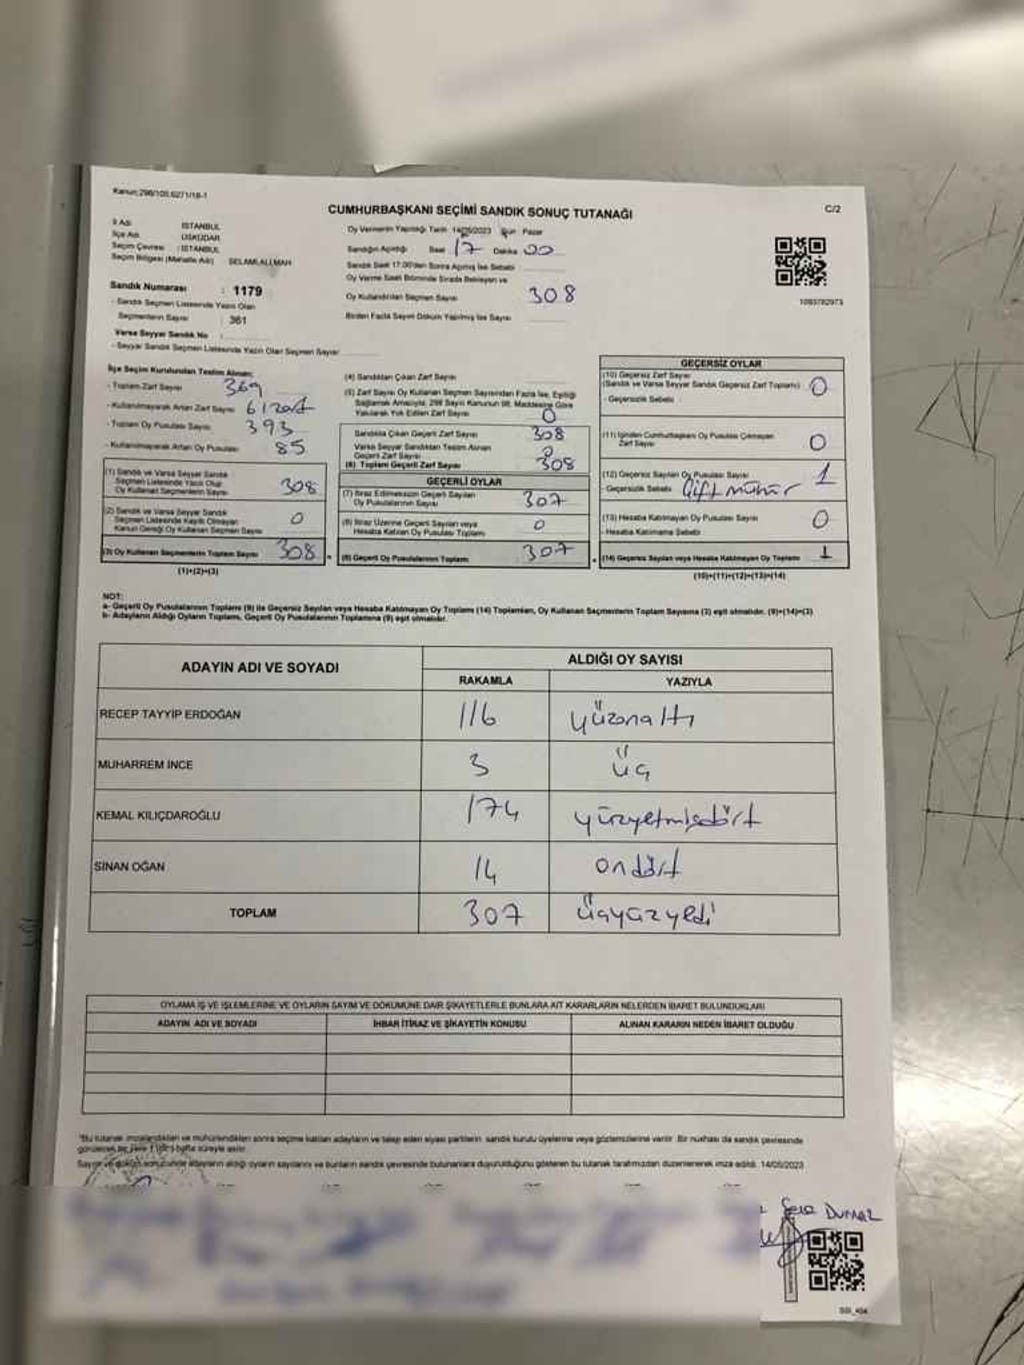 Kanun:298/105,6271/18-1
CUMHURBAŞKANI SEÇİMİ SANDIK SONUÇ TUTANAĞI
C/2
İl Adı : İSTANBUL
İlçe Adı : ÜSKÜDAR
Seçim Çevresi : İSTANBUL
Seçim Bölgesi (Mahalle Adı) SELAMİ ALİ MAH
Oy Vermenin Yapıldığı Tarih 14/05/2023 Gün Pazar
Sandığın Açıldığı Saat 17 Dakika 00
Sandık Saat 17:00'den Sonra Açılmış İse Sebebi :
Oy Verme Saati Bitiminde Sırada Bekleyen ve
Oy Kullandırılan Seçmen Sayısı 308
Birden Fazla Sayım Döküm Yapılmış İse Sayısı
1093782973
Sandık Numarası : 1179
- Sandık Seçmen Listesinde Yazılı Olan
Seçmenlerin Sayısı : 361
Varsa Seyyar Sandık No :
- Seyyar Sandık Seçmen Listesinde Yazılı Olan Seçmen Sayısı
İlçe Seçim Kurulundan Teslim Alınan:
- Toplam Zarf Sayısı 369
- Kullanılmayarak Artan Zarf Sayısı 61 zarf
- Toplam Oy Pusulası Sayısı 393
- Kullanılmayarak Artan Oy Pusulası 85
(1) Sandık ve Varsa Seyyar Sandık
Seçmen Listesinde Yazılı Olup
Oy Kullanan Seçmenlerin Sayısı 308
(2) Sandık ve Varsa Seyyar Sandık
Seçmen Listesinde Kayıtlı Olmayan
Kanun Gereği Oy Kullanan Seçmen Sayısı 0
(3) Oy Kullanan Seçmenlerin Toplam Sayısı 308
(1)+(2)=(3)
(4) Sandıktan Çıkan Zarf Sayısı
(5) Zarf Sayısı Oy Kullanan Seçmen Sayısından Fazla İse, Eşitliği
Sağlamak Amacıyla, 298 Sayılı Kanunun 98. Maddesine Göre
Yakılarak Yok Edilen Zarf Sayısı 0
Sandıkta Çıkan Geçerli Zarf Sayısı 308
Varsa Seyyar Sandıktan Teslim Alınan
Geçerli Zarf Sayısı 0
(6) Toplam Geçerli Zarf Sayısı 308
GEÇERLİ OYLAR
(7) İtiraz Edilmeksizin Geçerli Sayılan
Oy Pusulalarının Sayısı 307
(8) İtiraz Üzerine Geçerli Sayılan veya
Hesaba Katılan Oy Pusulası Toplamı 0
(9) Geçerli Oy Pusulalarının Toplamı 307
GEÇERSİZ OYLAR
(10) Geçersiz Zarf Sayısı
(Sandık ve Varsa Seyyar Sandık Geçersiz Zarf Toplamı) 0
- Geçersizlik Sebebi
(11) İçinden Cumhurbaşkanı Oy Pusulası Çıkmayan
Zarf Sayısı 0
(12) Geçersiz Sayılan Oy Pusulası Sayısı 1
- Geçersizlik Sebebi Çift mühür
(13) Hesaba Katılmayan Oy Pusulası Sayısı 0
- Hesaba Katılmama Sebebi
(14) Geçersiz Sayılan veya Hesaba Katılmayan Oy Toplamı 1
(10)+(11)+(12)+(13)=(14)
NOT:
a- Geçerli Oy Pusulalarının Toplamı (9) ile Geçersiz Sayılan veya Hesaba Katılmayan Oy Toplamı (14) Toplamları, Oy Kullanan Seçmenlerin Toplam Sayısına (3) eşit olmalıdır. (9)+(14)=(3)
b- Adayların Aldığı Oyların Toplamı, Geçerli Oy Pusulalarının Toplamına (9) eşit olmalıdır.
ADAYIN ADI VE SOYADI
ALDIĞI OY SAYISI
RAKAMLA YAZIYLA
RECEP TAYYİP ERDOĞAN 116 yüzonaltı
MUHARREM İNCE 3 üç
KEMAL KILIÇDAROĞLU 174 yüzyetmişdört
SİNAN OĞAN 14 ondört
TOPLAM 307 üçyüzyedi
OYLAMA İŞ VE İŞLEMLERİNE VE OYLARIN SAYIM VE DÖKÜMÜNE DAİR ŞİKAYETLERLE BUNLARA AİT KARARLARIN NELERDEN İBARET BULUNDUKLARI
ADAYIN ADI VE SOYADI İHBAR İTİRAZ VE ŞİKAYETİN KONUSU ALINAN KARARIN NEDEN İBARET OLDUĞU
"Bu tutanak imzalandıktan ve mühürlendikten sonra seçime katılan adayların ve talep eden siyasi partilerin sandık kurulu üyelerine veya gözlemcilerine verilir. Bir nüshası da sandık çevresinde
görülecek bir yere 1 (bir) hafta süreyle asılır.
Sayım ve döküm sonucunda adayların aldığı oyların sayılarını ve bunların sandık çevresinde bulunanlara duyurulduğunu gösteren bu tutanak tarafımızdan düzenlenerek imza edildi. 14/05/2023